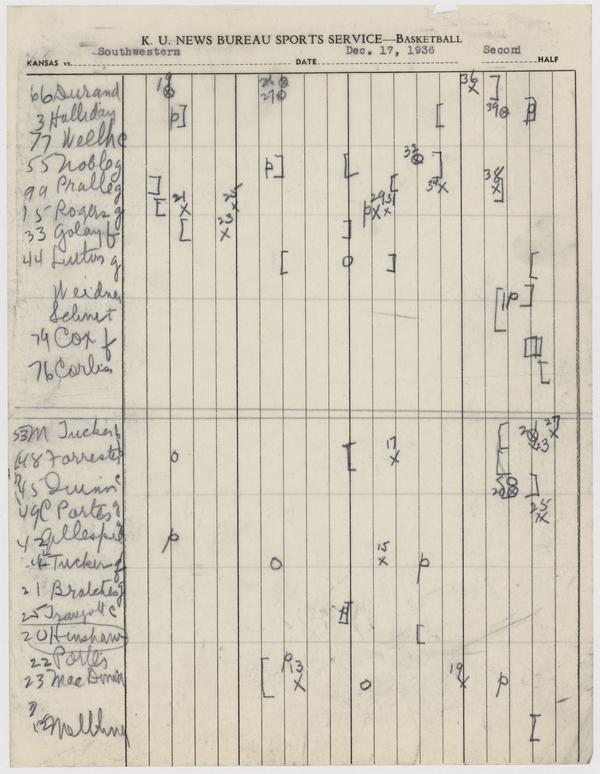 K. U. NEWS BUREAU SPORTS SERVICE—BASKETBALL
Southwestern Dec. 17, 1936 Second
KANSAS vs. DATE HALF
66 Durand 19 26 27 36
3 Halliday p 39 p
77 Wellh c
55 Noble g p 33
99 Pralle g 34 X 38 X
15 Rogers g 21 X 25 X p 29 X 31 X
33 Golay f 23 X
44 Lutton g o
Weidner p
Schnert
79 Cox f
76 Corlis
53 M Tucker 27 X 23
48 Forrester o 17 X
45 Quinn c
49 C Porter g 25 X
42 Gillespie g p
Tucker f o 15 X p
21 Bratches g
25 c
20 Hinshaw
22 Porter
23 MacDonald p 13 X o 19 X p